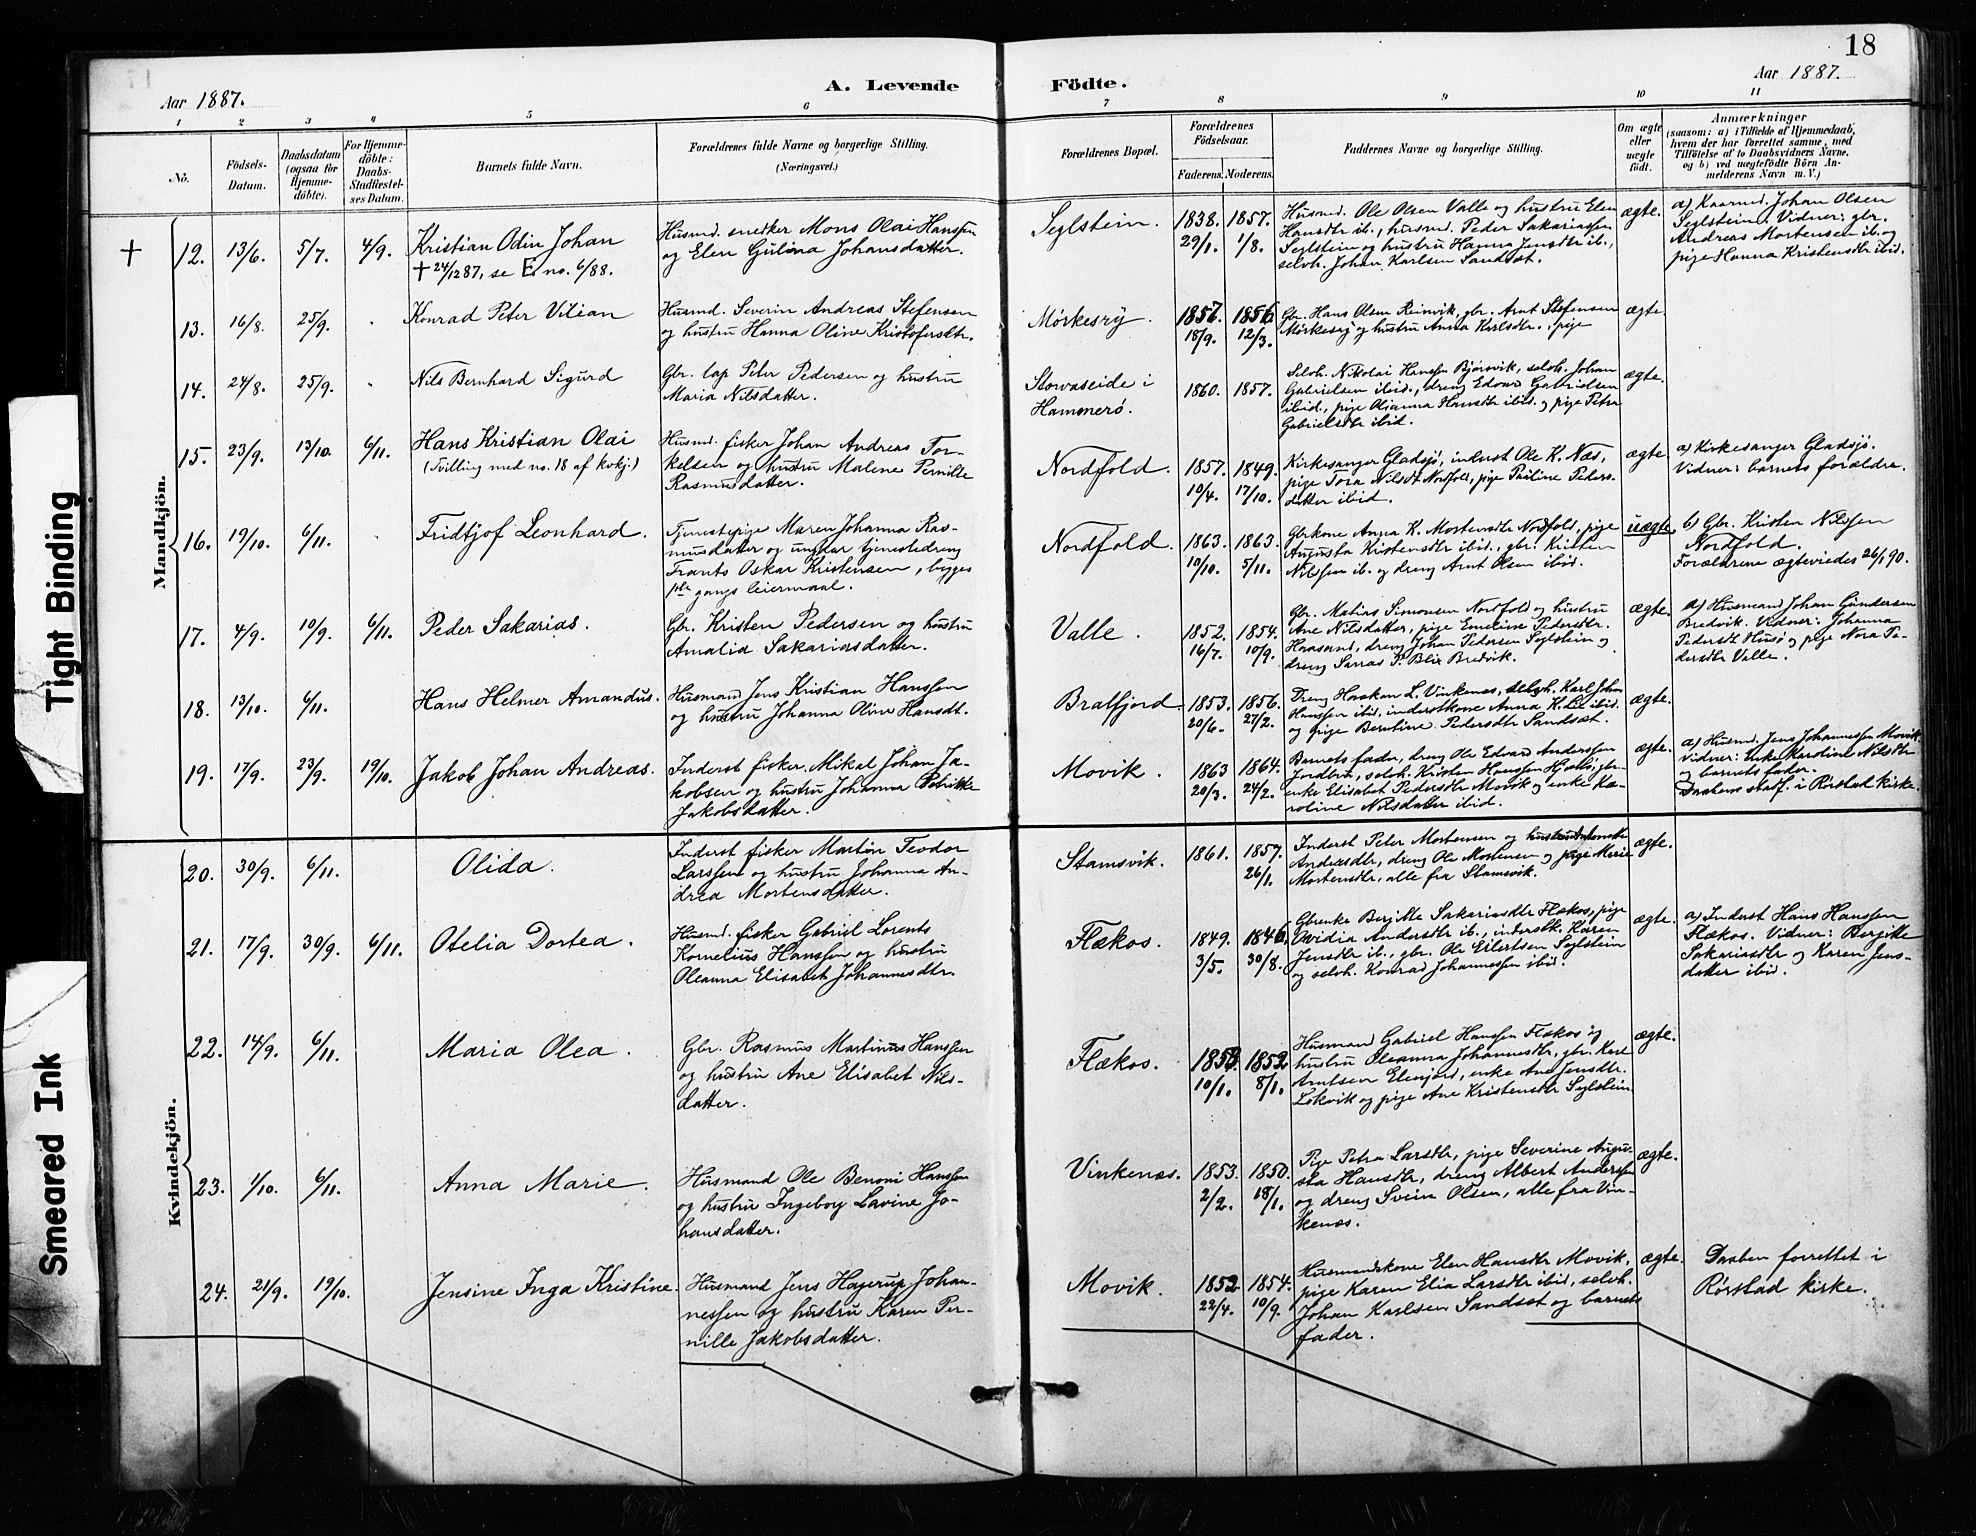 18
Aar 1887.
A. Levende
Födte.
Aar 1887.
1 2 3 4 5 6 7 8 9 10 11
No.
Födsels-
Datum.
Daabsdatum
(ogsaa for
Hjemme-
döbte).
For Hjemme-
döbte:
Daabs-
Stadfæstel-
ses Datum.
Barnets fulde Navn.
Forældrenes fulde Navne og borgerlige Stilling.
(Næringsvei.)
Forældrenes Bopæl.
Forældrenes
Födselsaar.
Faderens. Moderens.
Faddernes Navne og borgerlige Stilling.
Om ægte
eller
uægte
födt.
Anmærkninger
(saasom: a) i Tilfælde af Hjemmedaab,
hvem der har forrettet samme, med
Tilföielse af to Daabsvidners Navne,
og b) ved uægtefödte Börn An-
melderens Navn m. V.)
Mandkjön.
† 12. 13/6. 5/7. 4/9.
Kristian Odin Johan
† 24/12 87, se E no. 6/88.
Husmd. snedker Mons Olai Hanssen
og Elen Gulina Johansdatter.
Seglstein.
1838. 1857.
29/1. 1/8.
Husmd. Ole Olsen Valle og hustru Elen
Hansdtr ib., husmd. Peder Sakariassen
Seglstein og hustru Hanna Jensdtr ib.,
selvh. Johan Karlsen Sandsæt.
ægte.
a) Kaarmd. Johan Olsen
Seglstein. Vidner: gbr.
Andreas Mortensen ib. og
pige Hanna Kristensdtr ibid.
13. 16/8. 25/9.
Konrad Peter Vilian
Husmd. Severin Andreas Stefensen
og hustru Hanna Oline Kristofersdtr.
Mörkesry.
1857. 1856.
18/9. 12/3.
Gbr. Hans Olsen Reinvik, gbr. Arnt Stefensen
Mörkesrj og hustru Anna Karlsdtr., pige
ægte.
14. 24/8. 25/9.
Nils Bernhard Sigurd
Gbr. lap Peter Pedersen og hustru
Maria Nilsdatter.
Storvaseide i
Hammerö.
1860. 1857.
Selvh. Nikolai Hanssen Bjørsvik, selvh. Johan
Gabrielsen ibid., dreng Edvard Gabrielsen
ibid., pige Olianna Hansdtr ibid. og pige Petra
Gabrielsdtr ibid.
ægte.
15. 23/9. 13/10. 6/11.
Hans Kristian Olai
(Tvilling med no. 18 af kvkj.)
Husmd. fisker Johan Andreas Tor-
kelsen og hustru Malene Pernille
Rasmusdatter.
Nordfold.
1857. 1849.
10/4. 17/10.
Kirkesanger Gladsjö, inderst Ole K. Næs,
pige Tora Nilsdt Nordfold, pige Pauline Peders-
datter ibid.
ægte.
a) Kirkesanger Gladsjö.
Vidner: barnets forældre.
16. 19/10. 6/11.
Fridtjof Leonhard.
Tjenestepige Maren Johanna Ras-
musdatter og ungkar tjenestedreng
Frants Oskar Kristensen, begges
1ste gangs leiermaal.
Nordfold.
1863. 1863.
10/10. 5/11.
Gbrkone Anna K. Mortensdtr Nordfold, pige
Augusta Kristensdtr ibid., gbr. Kristen
Nilssen ib. og dreng Arnt Olsen ibid.
uægte.
b) Gbr. Kristen Nilssen
Nordfold.
Forældrene ægteviedes 26/1 90.
17. 4/9. 10/9. 6/11.
Peder Sakarias.
Gbr. Kristen Pedersen og hustru
Amalia Sakariasdatter.
Valle.
1852. 1854.
16/7. 10/9.
Gbr. Matias Simonsen Nordfold og hustru
Ane Nilsdatter, pige Emeline Pedersdtr.
Haasand, dreng Johan Pedersen Seglstein og
dreng Sarras P. Blix Bredvik.
ægte.
a) Husmand Johan Gundersen
Bredvik. Vidner: Johanna
Pedersdt Husö og pige Nora Pe-
dersdtr Valle.
18. 13/10. 6/11.
Hans Helmer Amandus.
Husmand Jens Kristian Hanssen
og hustru Johanna Oline Hansdt.
Bratfjord.
1853. 1856.
20/6. 27/2.
Dreng Haakon L. Vinkenæs, selvh. Karl Johan
Hanssen ibid., inderstkone Anna K. Lie ibid.
og pige Berntine Pedersdtr Sandsæt.
ægte.
19. 17/9. 23/9. 19/10.
Jakob Johan Andreas.
Inderst fisker Mikal Johan Ja-
kobsen og hustru Johanna Petrikke
Jakobsdatter.
Movik.
1863 1864.
20/3. 24/2.
Barnets fader, dreng Ole Edvard Anderssen
Jordbru, selvh. Kristen Hanssen Hjelli, gbr-
enke Elisabet Pedersdtr Movik og enke Ka-
roline Nilsdatter ibid.
ægte.
a) Husmd. Jens Johannessen Movik.
Vidner: Enke Karoline Nilsdtr
og barnets fader.
Daabens stadf. i Rörstad kirke.
Kvindekjön.
20. 30/9. 6/11.
Olida.
Inderst fisker Martin Teodor
Larssen og hustru Johanna An-
drea Mortensdatter.
Stamsvik.
1861. 1857.
26/1.
Inderst Peter Mortensen og hustru Antonette
Andersdtr, dreng Ole Mortensen og pige Marie
Mortensdtr, alle fra Stamsvik.
ægte.
21. 17/9. 30/9. 6/11.
Otelia Dortea.
Husmd. fisker Gabriel Lorents
Kornelius Hanssen og hustru
Oleanna Elisabet Johannesdtr.
Flækos.
1849. 1846.
3/5. 30/8.
Gbrenke Berjitte Sakariasdtr Flækos, pige
Ovidia Andersdtr ib., inderstk. Karen
Jensdtr ib., gbr. Ole Eilertsen Seglstein
og selvh. Konrad Johannessen ibid.
ægte.
a) Inderst Hans Hanssen
Flækos. Vidner: Bergitte
Sakariasdtr og Karen Jens-
datter ibid.
22. 14/9. 6/11.
Maria Olea.
Gbr. Rasmus Martinus Hanssen
og hustru Ane Elisabet Nils-
datter.
Flækos.
1853. 1852
10/1. 8/1.
Husmand Gabriel Hanssen Flækos og
hustru Oleanna Johannesdtr, gbr. Karl
Arntsen Elvfjord, enke Ane Jensdtr
Lökvik og pige Ane Kristensdtr Seglstein
ægte.
23. 1/10. 6/11.
Anna Marie.
Husmand Ole Benoni Hanssen
og hustru Ingeborg Lavine Jo-
hansdatter.
Vinkenæs.
1853. 1850.
2/2. 18/1.
Pige Petra Larsdtr, pige Severine Augu-
sta Hansdtr, dreng Albert Anderssen
og dreng Svein Olsen, alle fra Vin-
kenæs.
ægte.
24. 21/9. 19/10.
Jensine Inga Kristine.
Husmand Jens Hagerup Johan-
nessen og hustru Karen Per-
nille Jakobsdatter.
Movik.
1852 1854.
22/4. 10/9.
Husmandskone Elen Hansdtr Movik,
pige Karen Elia Larsdtr ibid., selvh.
Johan Karlsen Sandsæt og barnets
fader.
ægte.
Daaben forrettet i
Rørstad kirke.
Tight Binding
Smeared Ink